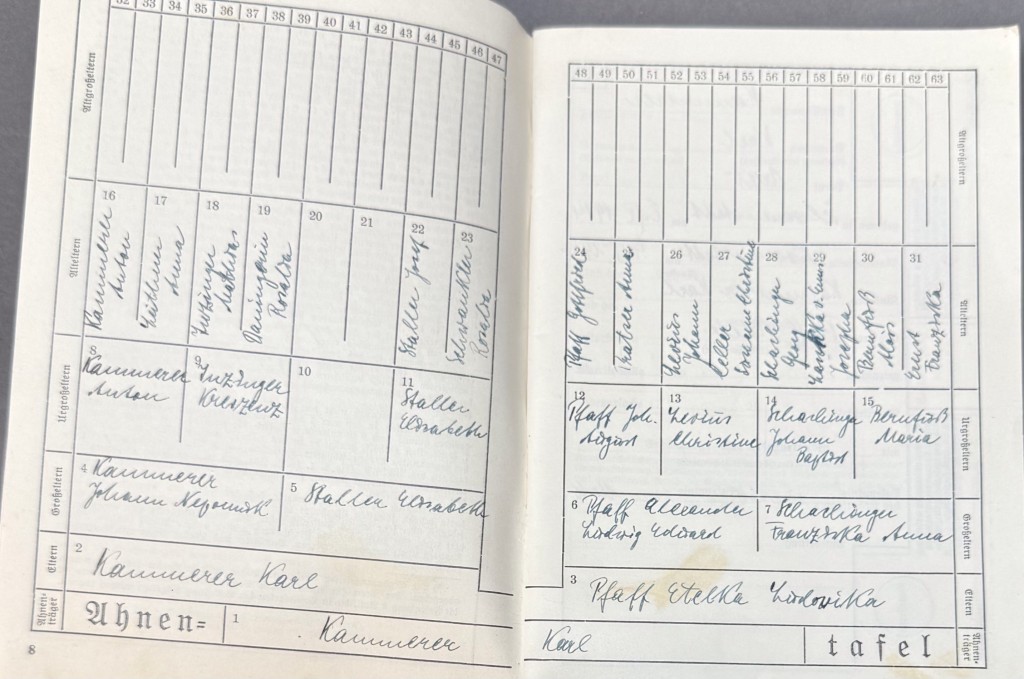 32 33 34 35 36 37 38 39 40 41 42 43 44 45 46 47
Altgroßeltern
16 17 18 19 20 21 22 23
Kammerer Anton
Anna
Inzinger Mathias
Rosalia
Staller Josef
Schwankler Rosalia
Alteltern
8 9 10 11
Kammerer Anton
Inzinger Kreszenz
Staller Elisabeth
Urgroßeltern
4 Kammerer
Johann Nepomuk
5 Staller Elisabeth
Großeltern
2
Kammerer Karl
Eltern
Ahnen-
träger
Ahnen=
1
Kammerer
8
48 49 50 51 52 53 54 55 56 57 58 59 60 61 62 63
Altgroßeltern
24 26 27 28 29 30 31
Pfaff Gottfried
Anna
Levius Johann
Susanne Christine
Scharlinger Georg
Josepha
Bernfuß Alois
Ernst Franziska
Alteltern
12 13 14 15
Pfaff Joh. August
Levius Christine
Scharlinger Johann Baptist
Bernfuß Maria
Urgroßeltern
6 Pfaff Alexander
Ludwig Eduard
7 Scharlinger
Franziska Anna
Großeltern
3
Pfaff Etelka Ludowika
Eltern
Karl
tafel
Ahnen-
träger